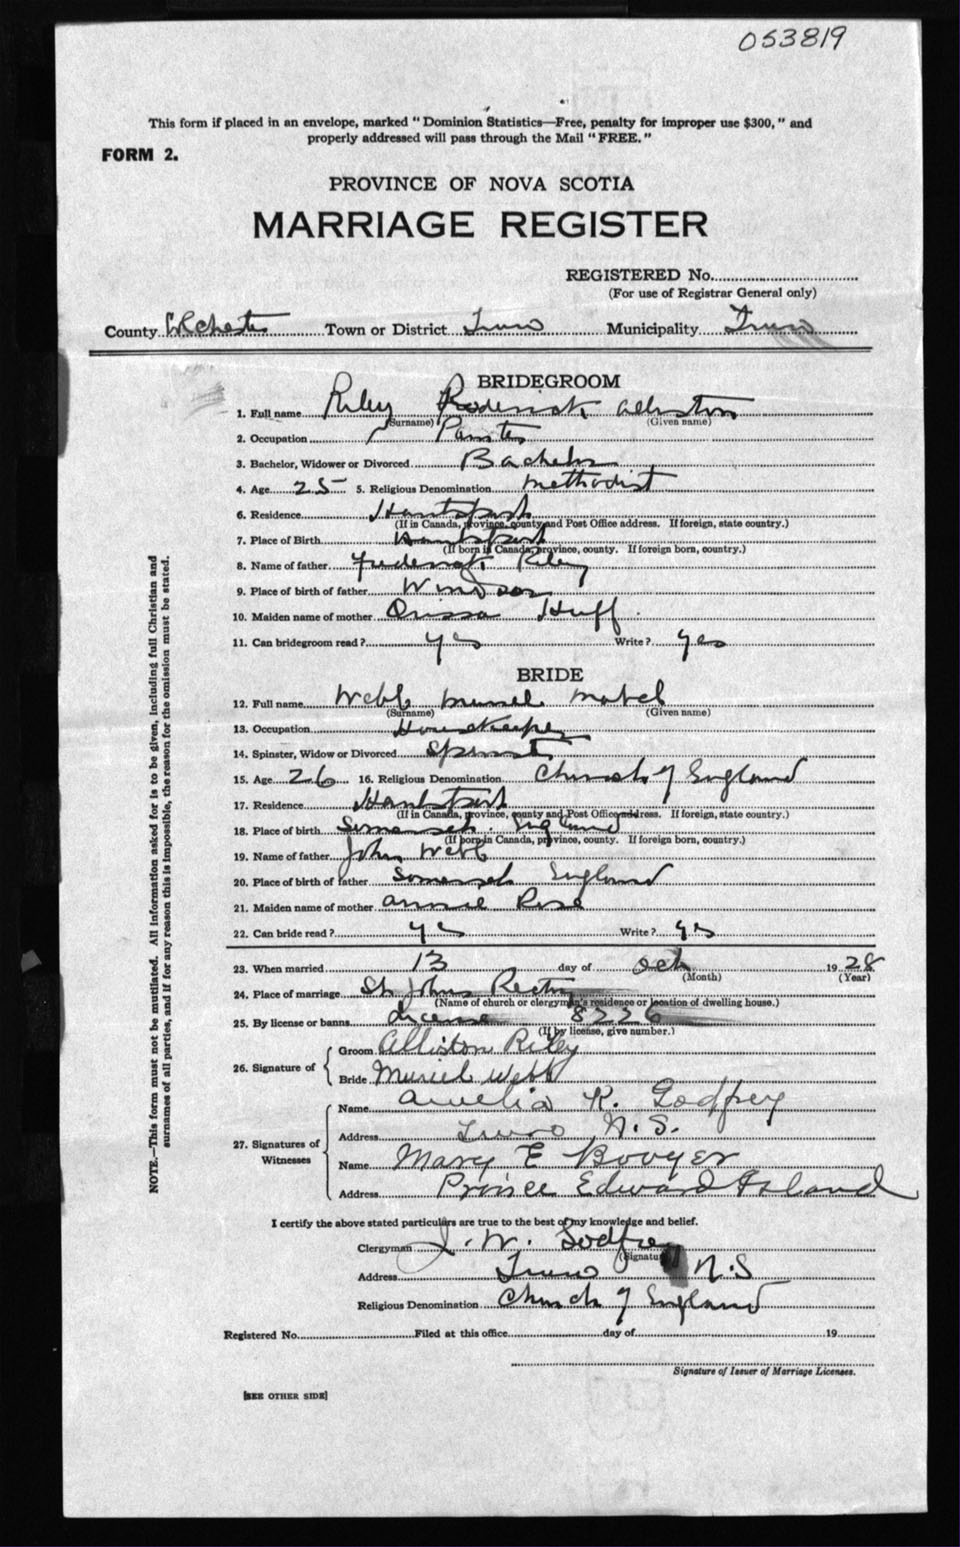 053819
This form if placed in an envelope, marked "Dominion Statistics—Free, penalty for improper use $300," and
properly addressed will pass through the Mail "FREE."
FORM 2.
PROVINCE OF NOVA SCOTIA
MARRIAGE REGISTER
REGISTERED No.
(For use of Registrar General only)
County Colchester Town or District Truro Municipality Truro
BRIDEGROOM
1. Full name Riley Roderick Alliston
(Surname) (Given name)
2. Occupation Painter
3. Bachelor, Widower or Divorced Bachelor
4. Age 25 5. Religious Denomination Methodist
6. Residence Hantsport
(If in Canada, province, county and Post Office address. If foreign, state country.)
7. Place of Birth Hantsport
(If born in Canada, province, county. If foreign born, country.)
8. Name of father Frederick Riley
9. Place of birth of father Windsor
10. Maiden name of mother Orissa Huff
11. Can bridegroom read? yes Write? yes
BRIDE
12. Full name Webb Muriel Mabel
(Surname) (Given name)
13. Occupation Housekeeper
14. Spinster, Widow or Divorced Spinster
15. Age 26 16. Religious Denomination Church of England
17. Residence Hantsport
(If in Canada, province, county and Post Office address. If foreign, state country.)
18. Place of birth Somerset England
(If born in Canada, province, county. If foreign born, country.)
19. Name of father John Webb
20. Place of birth of father Somerset England
21. Maiden name of mother Annie Rose
22. Can bride read? yes Write? yes
23. When married 13 day of Oct 1928
(Month) (Year)
24. Place of marriage St Johns Rectory
(Name of church or clergyman's residence or location of dwelling house.)
25. By license or banns License 8226
(If by license, give number.)
26. Signature of
Groom Alliston Riley
Bride Muriel Webb
27. Signatures of Witnesses
Name Amelia R. Godfrey
Address Truro N.S.
Name Mary E Booyer
Address Prince Edward Island
I certify the above stated particulars are true to the best of my knowledge and belief.
Clergyman J. W. Godfrey
(Signature)
Address Truro N.S
Religious Denomination Church of England
Registered No. Filed at this office day of 19
Signature of Issuer of Marriage Licenses.
[SEE OTHER SIDE]
NOTE.—This form must not be mutilated. All information asked for is to be given, including full Christian and
surnames of all parties, and if for any reason this is impossible, the reason for the omission must be stated.